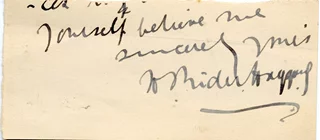 yourself believe me
sincerely yours
H Rider Haggard